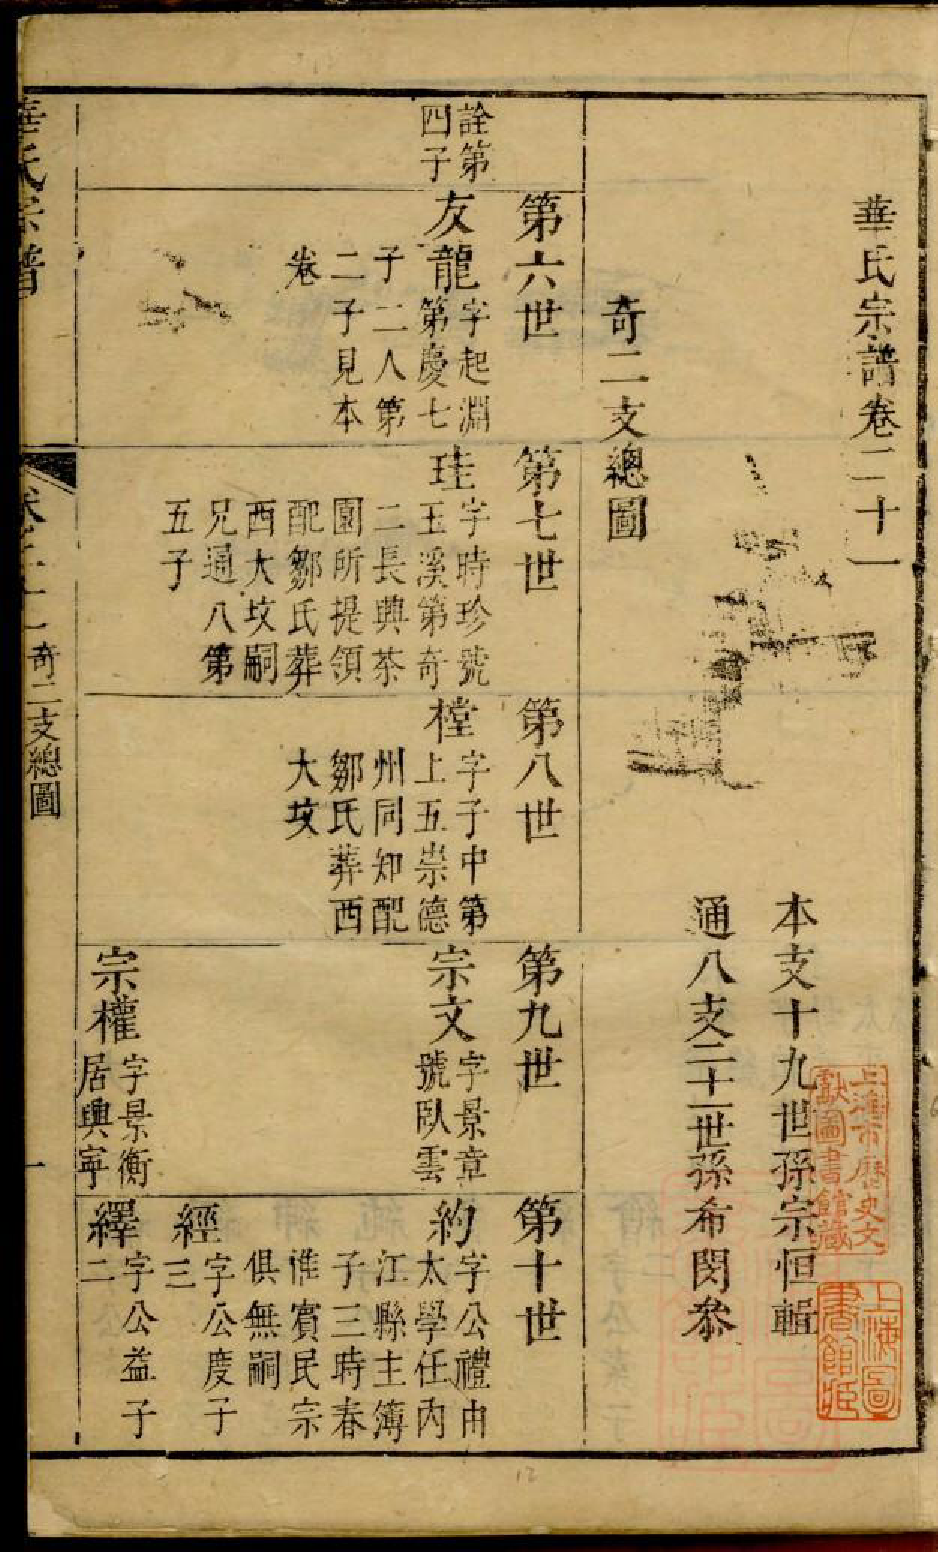 華氏宗譜卷二十一
本支十九世孫宗恒輯
通八支二十一世孫希閔叅
奇二支總圖
詮第
四子
第六世
友龍
字起淵
第慶七
子二人第
二子見本
卷
第七世
珪
字時珍號
玉溪第奇
二長興茶
園所提領
配鄒氏葬
西大坟嗣
兄通八第
五子
第八世
樘
字子中第
上五崇德
州同知配
鄒氏葬西
大坟
第九世
宗文
字景章
號臥雲
宗權
字景衡
居興寧
第十世
約
字公禮由
太學任內
江縣主簿
子三時春
惟賓民宗
俱無嗣
經
字公度子
三
繹
字公益子
二
華氏宗譜
卷二十一
奇二支總圖
一
上海市歷史文
獻圖書館藏
上海圖
書館藏